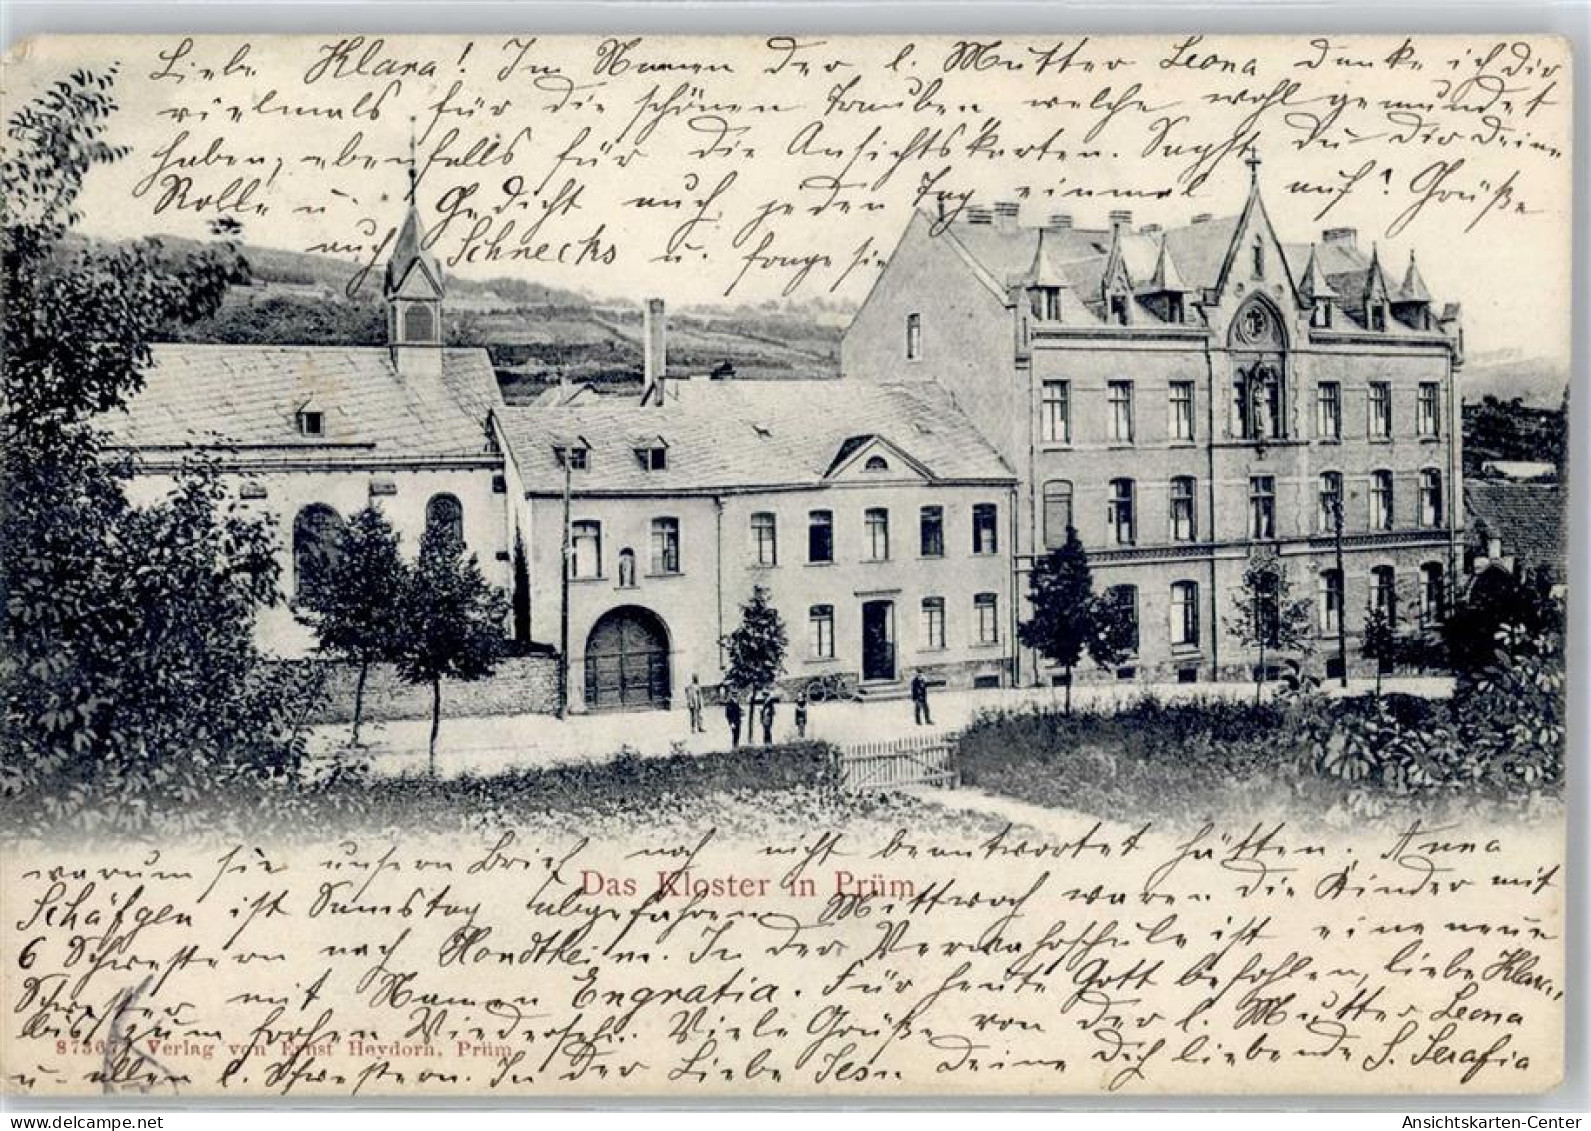 Liebe Klara! Im Namen der l. Mutter Leona danke ich dir
vielmals für die schönen Trauben, welche wohl gemundet
haben, ebenfalls für die Ansichtskarten. Sagst Du dir deine
Rolle u. Gedicht auch jeden Tag einmal auf? Grüße
auch Schnecks u. frage sie
warum sie unsern Brief noch nicht beantwortet hätten. Anna
Das Kloster in Prüm.
Schäfgen ist Samstag abgefahren. Mittwoch waren die Kinder mit
6 Schwestern nach Rondtheim. In der Verwahrschule ist eine neue
Schwester mit Namen Engratia. Für heute Gott befohlen, liebe Klara,
bis zum frohen Wiederseh. Viele Grüße von der l. Mutter Leona
Verlag von Ernst Heydorn, Prüm
u. allen l. Schwestern. In der Liebe Jesu deine dich liebende S. Serafia
Ansichtskarten-Center